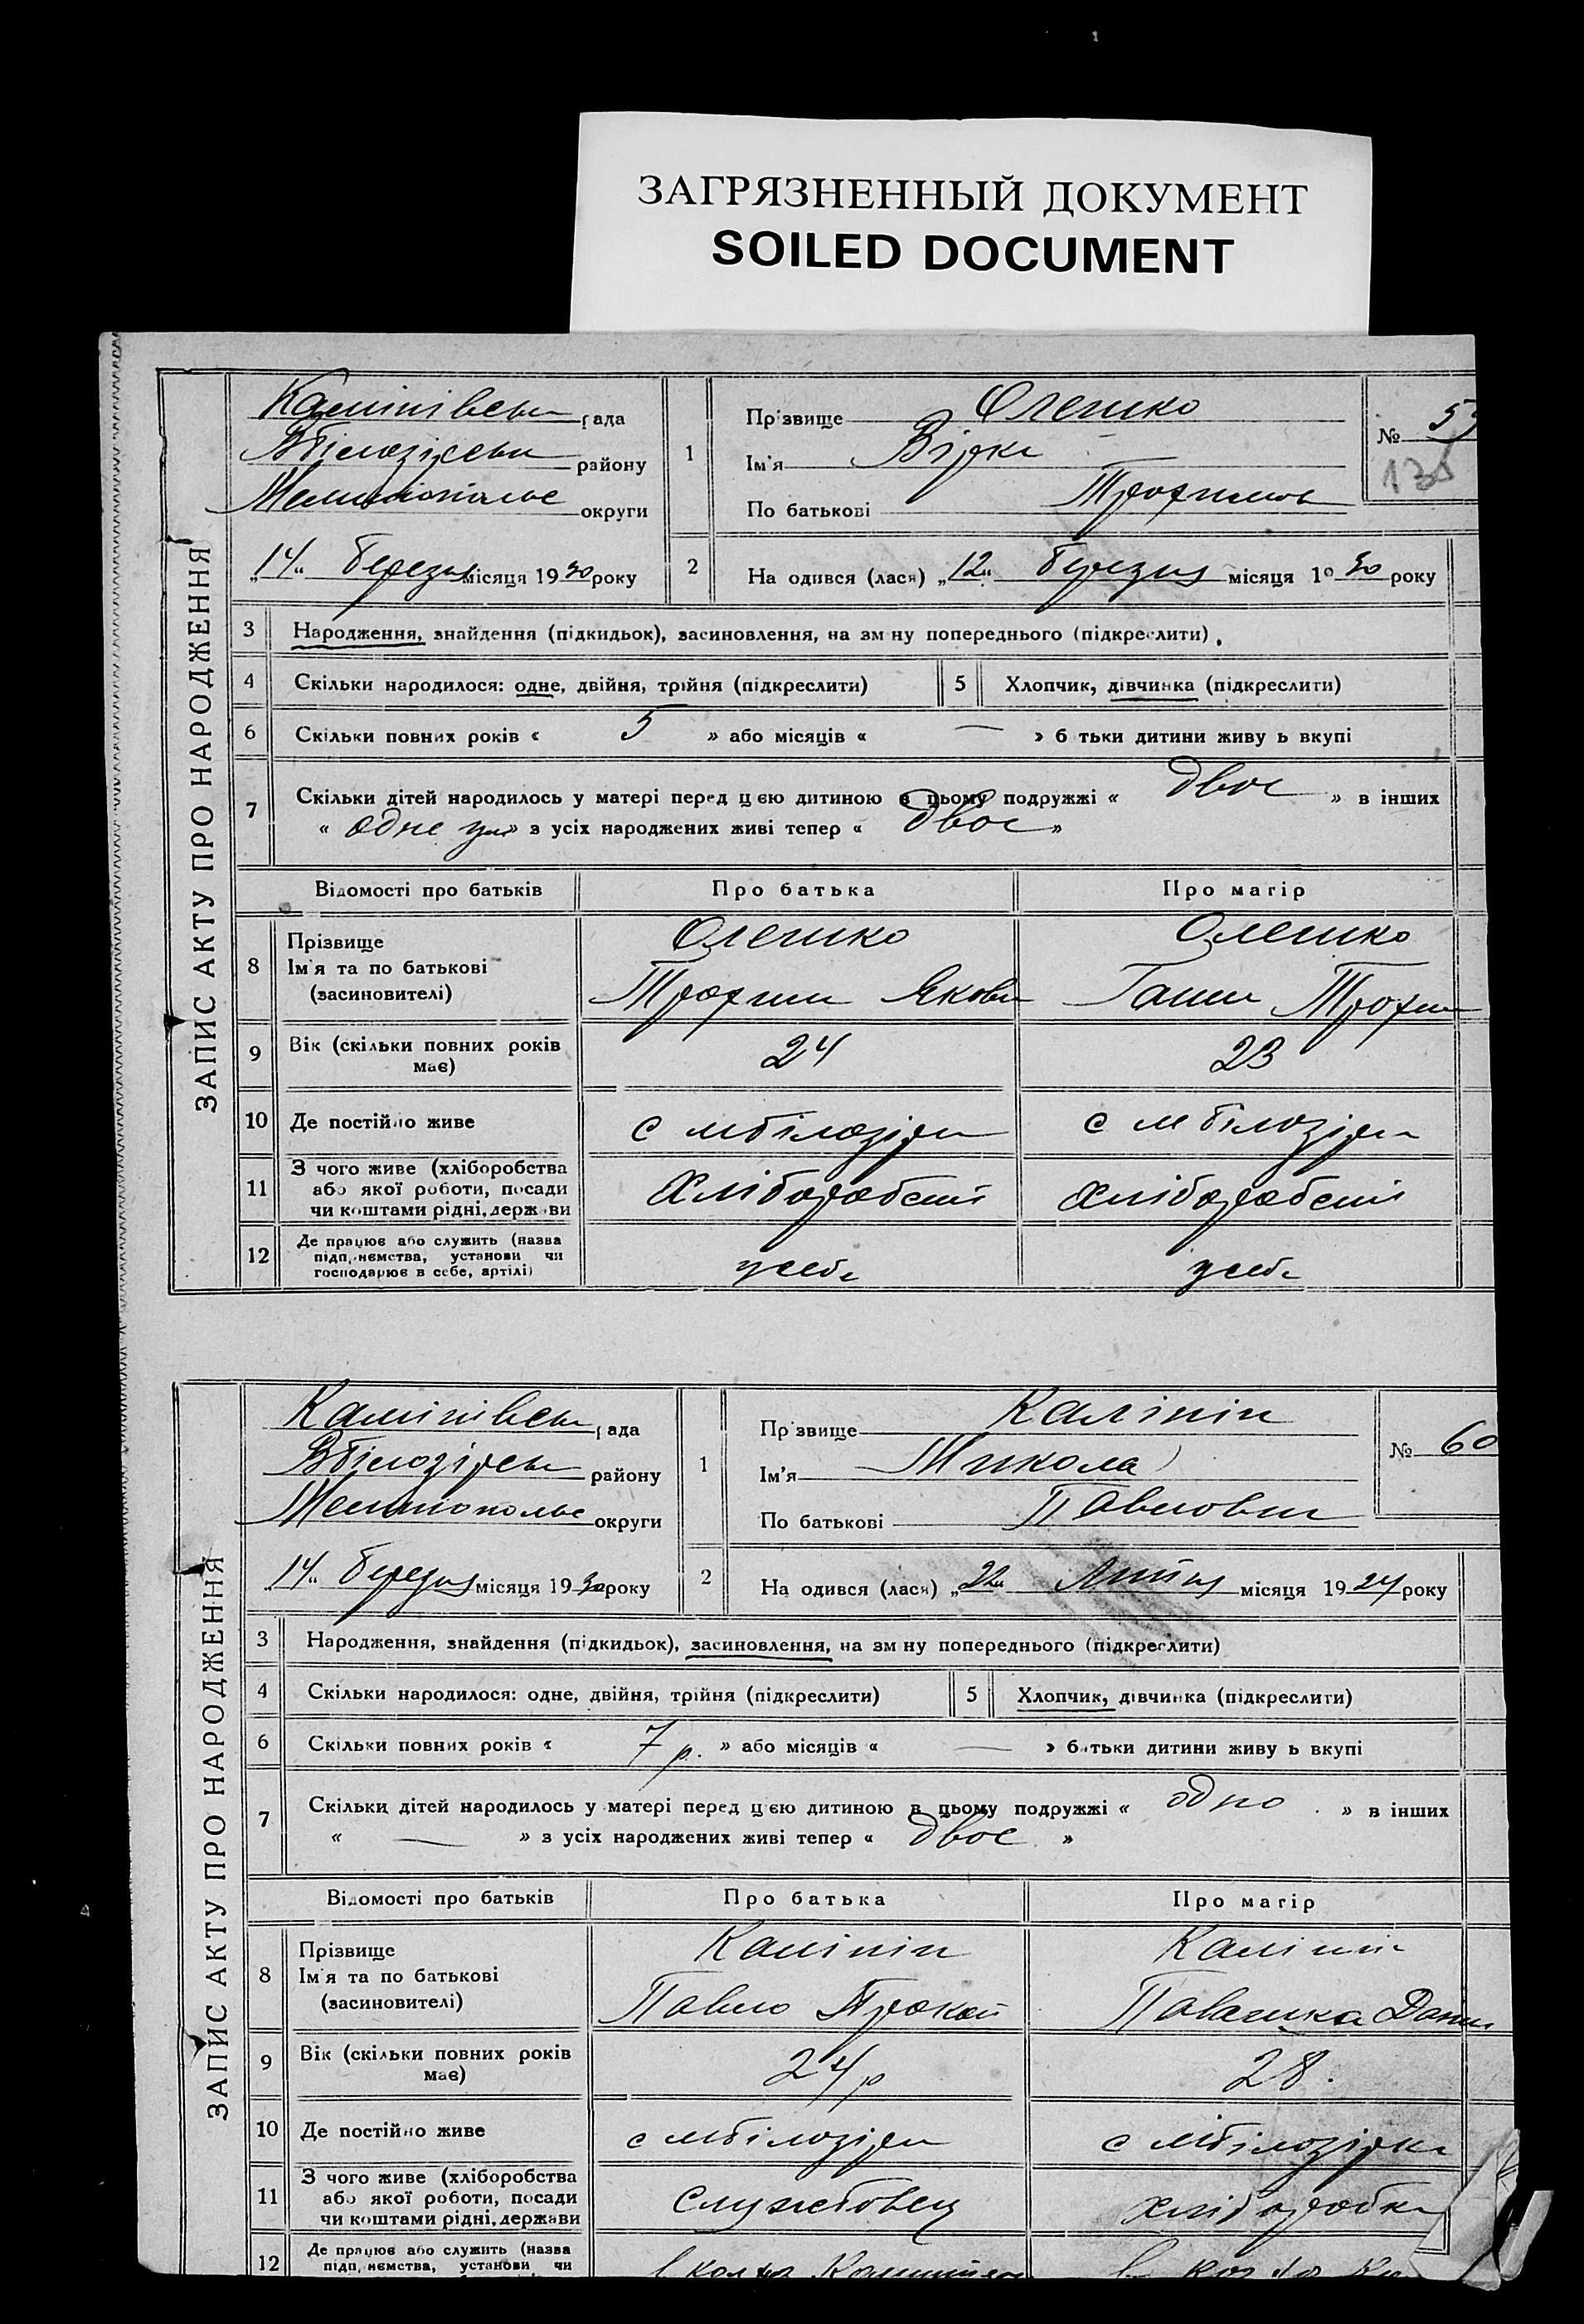 ЗАГРЯЗНЕННЫЙ ДОКУМЕНТ
SOILED DOCUMENT
ЗАПИС АКТУ ПРО НАРОДЖЕННЯ
рада
району
округи
„14“ березня місяця 1930 року
1
Прізвище Олешко
Ім'я Вірка
По батькові
№ 59
135
2
На одився (лася) „12“ березня місяця 1930 року
3 Народження, знайдення (підкидьок), засиновлення, на зм ну попереднього (підкреслити)
4 Скільки народилося: одне, двійня, трійня (підкреслити)
5 Хлопчик, дівчинка (підкреслити)
6 Скільки повних років « 5 » або місяців « — » б тьки дитини живу ь вкупі
7 Скільки дітей народилось у матері перед цією дитиною в цьому подружжі « двоє » в інших
« одне » з усіх народжених живі тепер « двоє »
Відомості про батьків Про батька Про матір
8 Прізвище Олешко Олешко
Ім'я та по батькові Трохим Якови Ганна Трохим
(засновителі)
9 Вік (скільки повних років має) 24 23
10 Де постійно живе с мбілозірка с мбілозірка
11 З чого живе (хліборобства
або якої роботи, посади
чи коштами рідні, держави
12 Де працює або служить (назва
підприємства, установи чи
господарює в себе, артілі) усебе усебе
ЗАПИС АКТУ ПРО НАРОДЖЕННЯ
рада
району
округи
„14“ березня місяця 1930 року
1
Прізвище Калінін
Ім'я Микола
По батькові Павлович
№ 60
2
На одився (лася) „22“ місяця 1924 року
3 Народження, знайдення (підкидьок), засиновлення, на зм ну попереднього (підкреслити)
4 Скільки народилося: одне, двійня, трійня (підкреслити)
5 Хлопчик, дівчинка (підкреслити)
6 Скільки повних років « 7 р. » або місяців « — » батьки дитини живу ь вкупі
7 Скільки дітей народилось у матері перед цією дитиною в цьому подружжі « одно » в інших
« — » з усіх народжених живі тепер « двоє »
Відомості про батьків Про батька Про матір
8 Прізвище Калінін Калінін
Ім'я та по батькові Павло
(засновителі)
9 Вік (скільки повних років має) 24 р 28.
10 Де постійно живе с мбілозірка с мбілозірка
11 З чого живе (хліборобства
або якої роботи, посади
чи коштами рідні, держави службовец хліборобка
12 Де працює або служить (назва
підприємства, установи чи